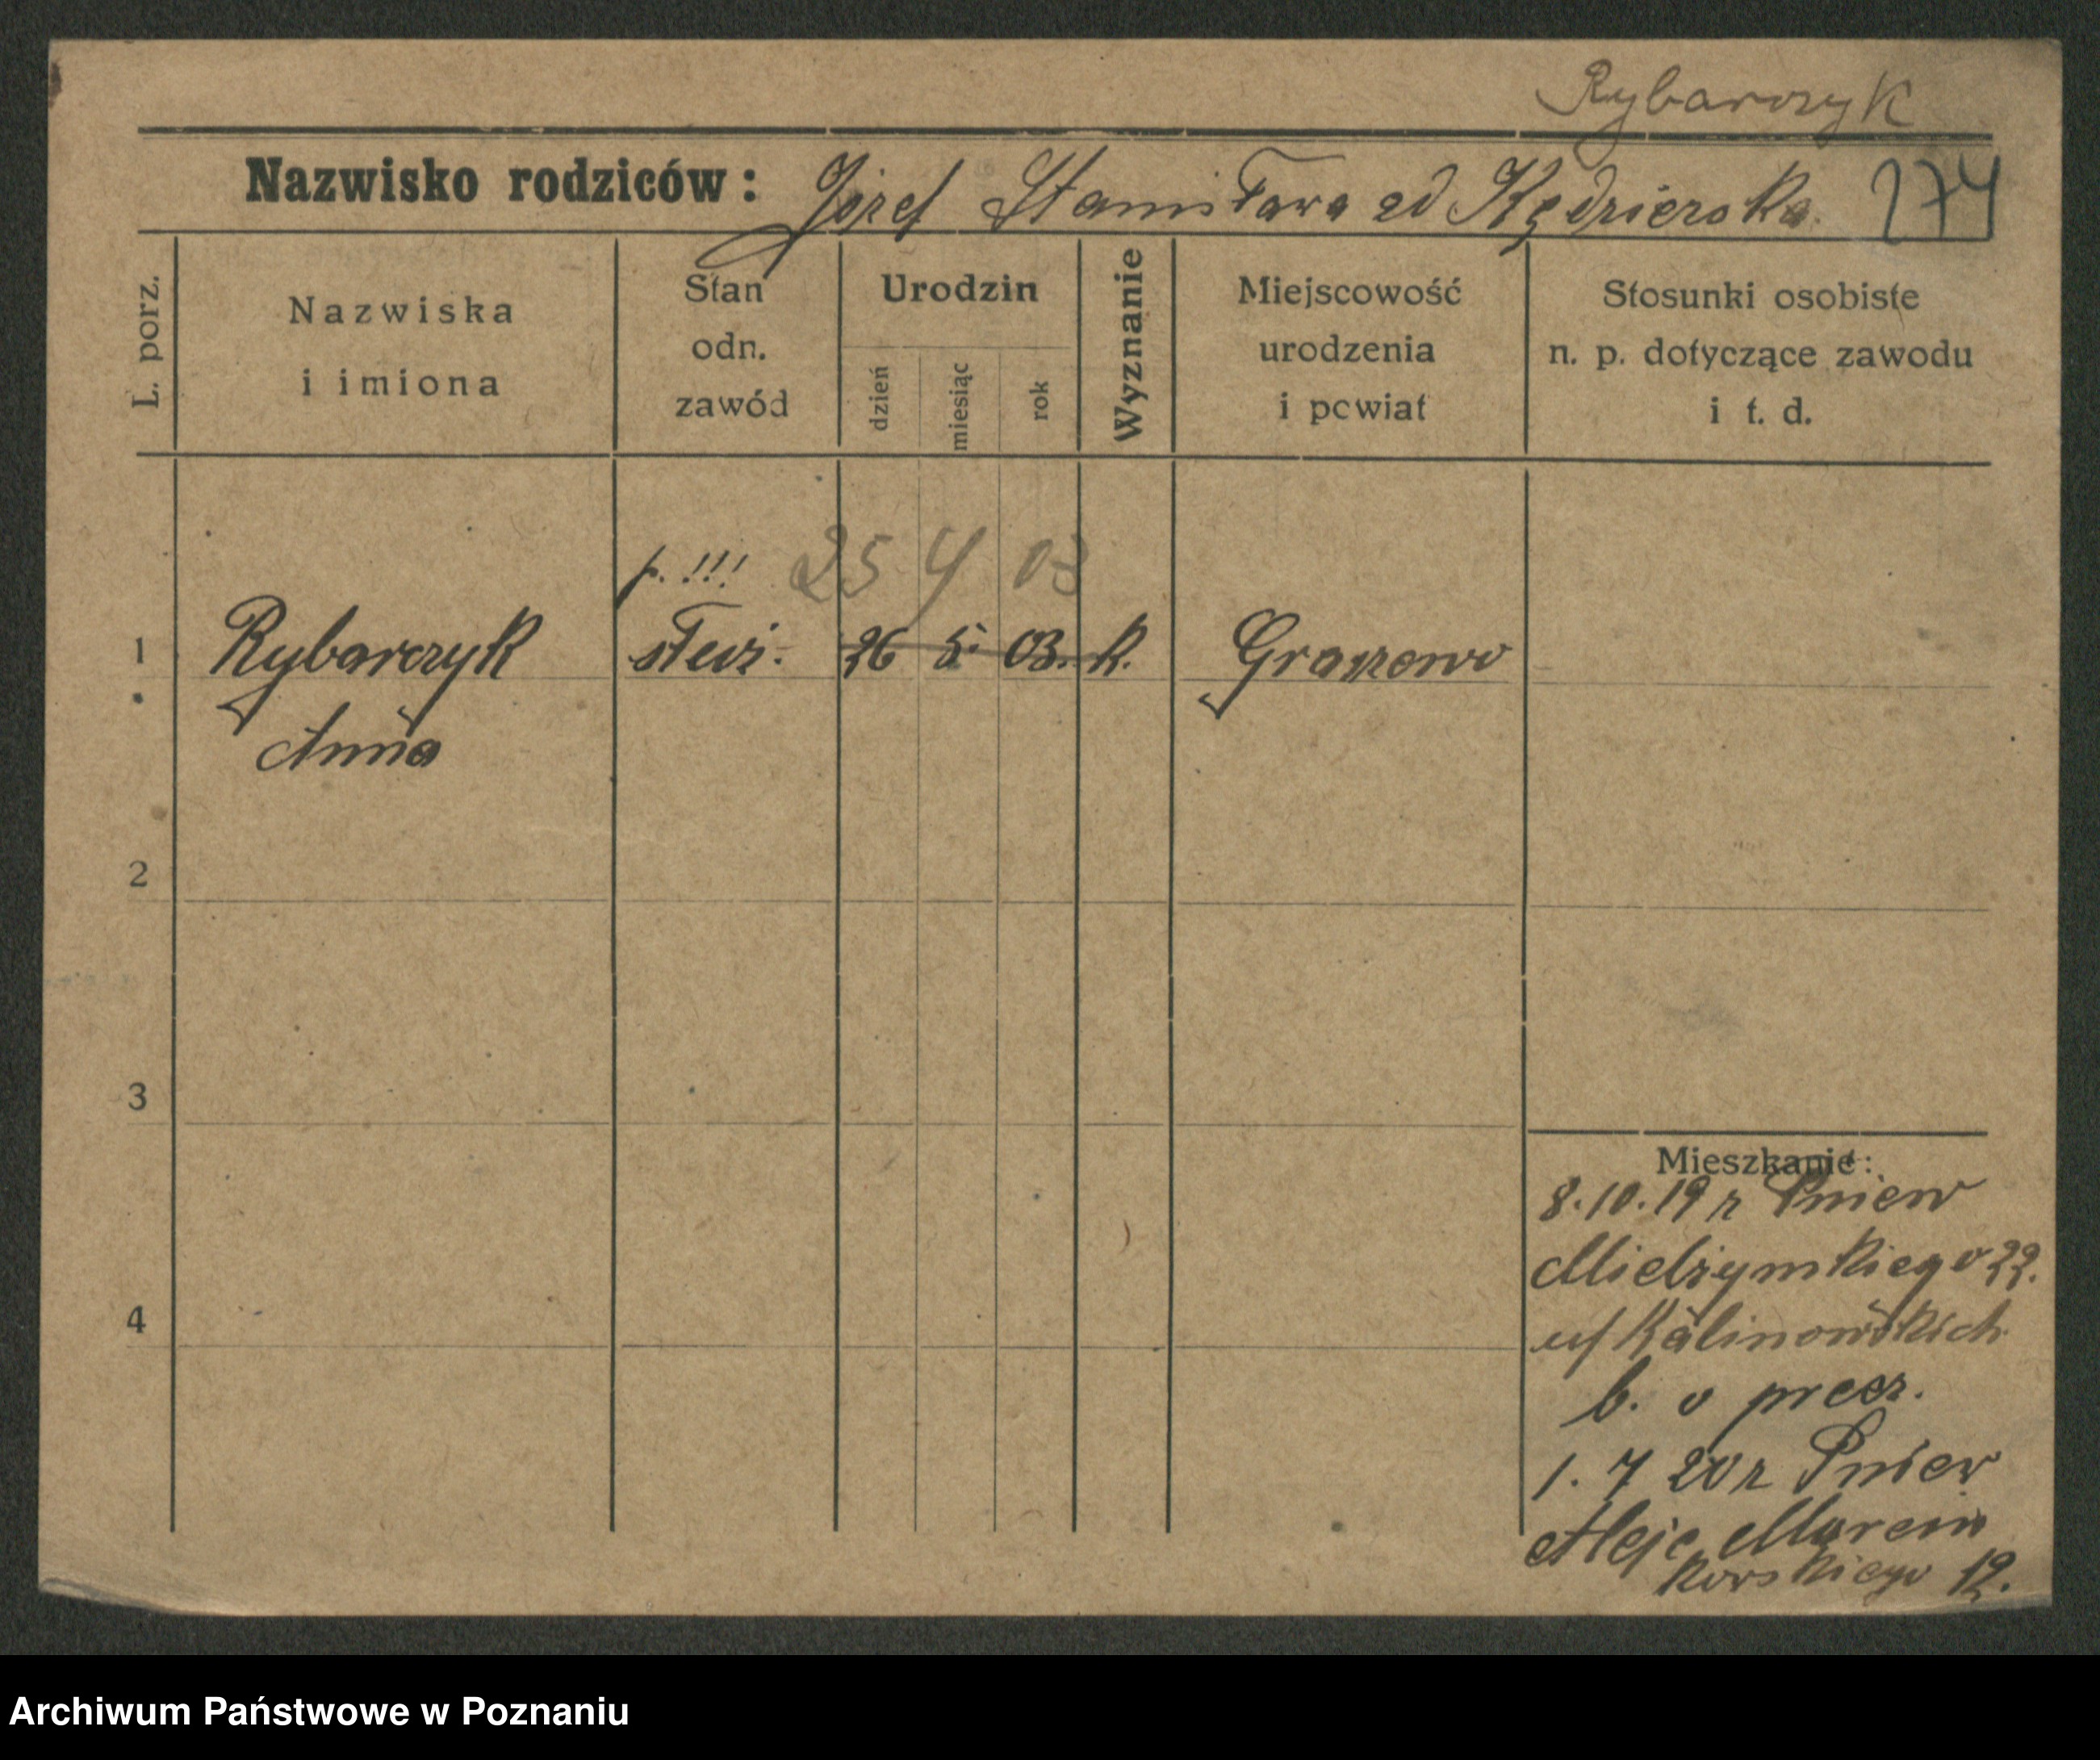 Rybarczyk
Nazwisko rodziców: Józef Stanisława zd Kędzierska. 274
L. porz.
Nazwiska
i imiona
Stan
odn.
zawód
Urodzin
dzień
miesiąc
rok
Wyznanie
Miejscowość
urodzenia
i powiat
Stosunki osobiste
n. p. dotyczące zawodu
i t. d.
p. !!! 25 4 03
1 Rybarczyk służ. 26 5. 03. k.
Anna
2
3
4
Mieszkanie:
8.10.19 r Pniew
Mielżyńskiego 22.
u/ Kalinowskich
b. o precz.
1. 7 20 r Pniew
Aleje Marcin
kowskiego 12.
Archiwum Państwowe w Poznaniu